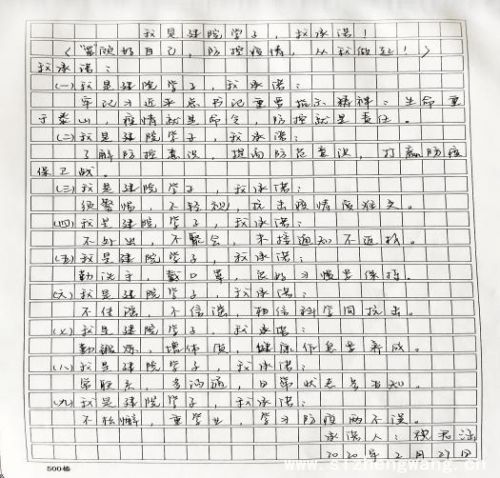 我是建院学子，我承诺！
（管理好自己，防控疫情，从我做起！）
我承诺：
（一）我是建院学子，我承诺：
牢记习近平总书记重要指示精神：生命重
于泰山，疫情就是命令，防控就是责任。
（二）我是建院学子，我承诺：
了解防控意识，提高防范意识，打赢防疫
保卫战。
（三）我是建院学子，我承诺：
须警惕，不轻视，抗击疫情度难关。
（四）我是建院学子，我承诺：
不外出，不聚会，未接通知不返校。
（五）我是建院学子，我承诺：
勤洗手，戴口罩，良好习惯要保持。
（六）我是建院学子，我承诺：
不住谣，不信谣，相信科学同抗击。
（七）我是建院学子，我承诺：
勤锻炼，增体质，健康作息要养成。
（八）我是建院学子，我承诺：
常联系，多沟通，日常状态多告知。
（九）我是建院学子，我承诺：
不松懈，重学业，学习防疫两不误。
承诺人：
2020年2月27日
500格
www.sizhengwang.cn